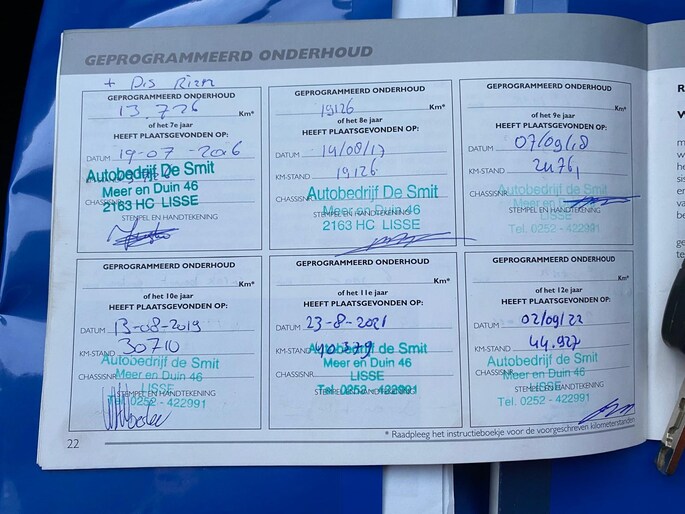 GEPROGRAMMEERD ONDERHOUD
+ Dis Riem
GEPROGRAMMEERD ONDERHOUD
13 726 Km*
of het 7e jaar
HEEFT PLAATSGEVONDEN OP:
DATUM 19-07-2016
Autobedrijf De Smit
Meer en Duin 46
CHASSISNR.
2163 HC LISSE
STEMPEL EN HANDTEKENING
GEPROGRAMMEERD ONDERHOUD
19126 Km*
of het 8e jaar
HEEFT PLAATSGEVONDEN OP:
DATUM 14/08/17
KM-STAND 19126
Autobedrijf De Smit
CHASSISNR.
Meer en Duin 46
STEMPEL EN HANDTEKENING
2163 HC LISSE
GEPROGRAMMEERD ONDERHOUD
Km*
of het 9e jaar
HEEFT PLAATSGEVONDEN OP:
DATUM 07/09/18
KM-STAND 24761
Autobedrijf De Smit
CHASSISNR.
Meer en Duin 46
STEMPEL EN HANDTEKENING
LISSE
Tel. 0252 - 422991
GEPROGRAMMEERD ONDERHOUD
Km*
of het 10e jaar
HEEFT PLAATSGEVONDEN OP:
DATUM 13-08-2019
KM-STAND 30710
Autobedrijf de Smit
CHASSISNR.
Meer en Duin 46
LISSE
STEMPEL EN HANDTEKENING
Tel. 0252 - 422991
GEPROGRAMMEERD ONDERHOUD
Km*
of het 11e jaar
HEEFT PLAATSGEVONDEN OP:
DATUM 23-8-2021
KM-STAND 40379
Autobedrijf de Smit
CHASSISNR.
Meer en Duin 46
LISSE
STEMPEL EN HANDTEKENING
Tel. 0252 - 422991
GEPROGRAMMEERD ONDERHOUD
Km*
of het 12e jaar
HEEFT PLAATSGEVONDEN OP:
DATUM 02/09/22
KM-STAND 44.927
Autobedrijf de Smit
CHASSISNR.
Meer en Duin 46
LISSE
STEMPEL EN HANDTEKENING
Tel. 0252 - 422991
22
* Raadpleeg het instructieboekje voor de voorgeschreven kilometerstanden